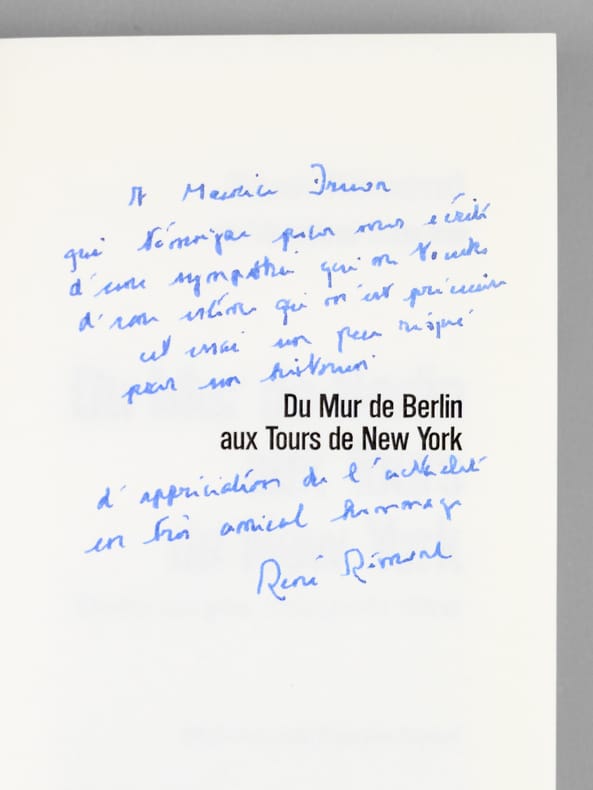 A Maurice Druon
qui témoigne pour mes écrits
d'une sympathie qui me touche
d'une estime qui m'est précieuse
cet essai un peu risqué
pour un historien
Du Mur de Berlin
aux Tours de New York
d'appréciation de l'actualité
en très amical hommage
René Rémond